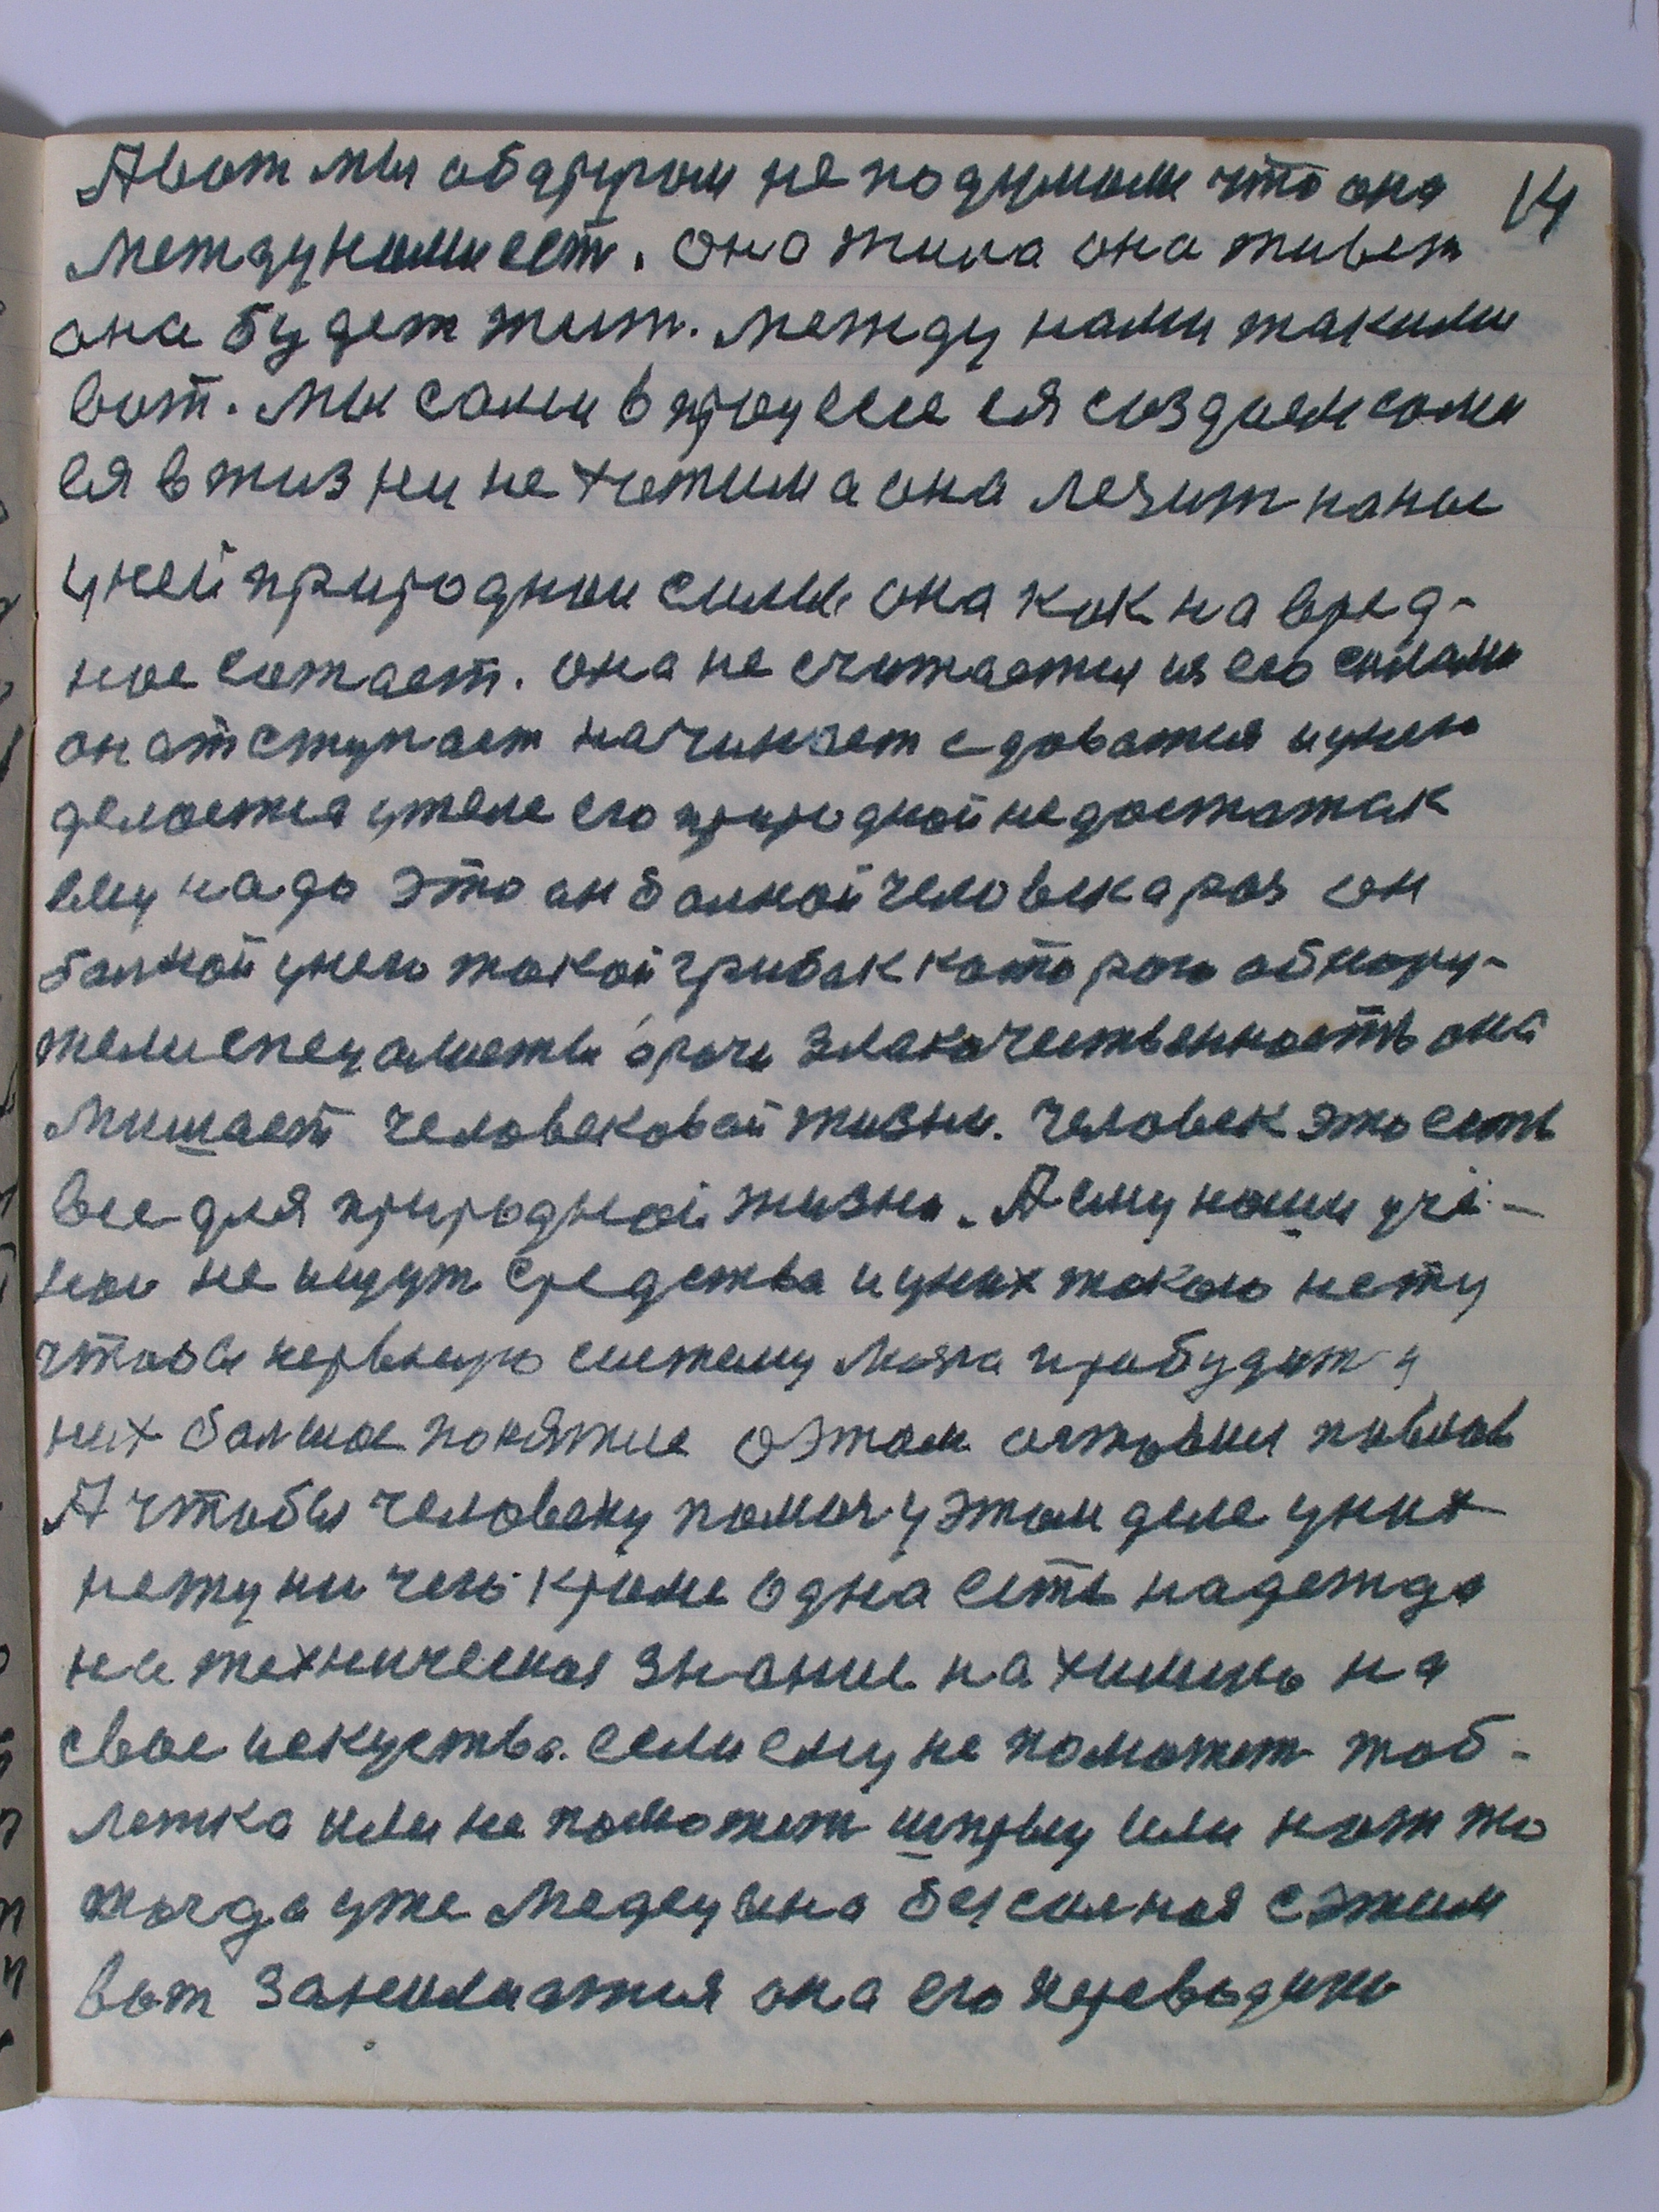 А вот мы об другом не подумали что она 14
между нами ест. Она жила она живет
она будет жит. между нами такими
вот. мы сами в процессе ея создаем сами
ея в жизни не хотим а она лезит на нас
у ней природнои силы она как на вред-
ное сотает. она не считается из его силами
он атступает начинает сдоватся и у нею
делоется у теле его природной недостатак
ему надо это он балной человека раз он
балной у нею такой грибак каторои обнару-
жели спецалисты врачи злакачественность она
мишает человековай жизни. Человек это есть
все для природной жизни. А ему наши учё-
нои не ищут средства и у них такою нету
чтобы нервную систему мозга прабудит у
них балшое понятие о этом
А чтобы человеку помоч у этом деле у них
нету ни чего кроме одна есть надежда
на техническое знание на химию на
свое искуства. если ему не поможет таб-
летка или не поможет шпрыц или нож то
тогда уже медецина безсилная с этим
вот занематся она его переводит